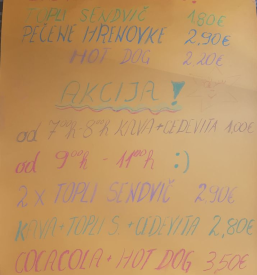 TOPLI SENDVIČ 1,80€
PEČENE HRENOVKE 2,90€
HOT DOG 2,20€
AKCIJA!
od 7⁰⁰h-8⁰⁰h KAVA+CEDEVITA 1,00€
od 9⁰⁰h - 11⁰⁰h :)
2 x TOPLI SENDVIČ 2,90€
KAVA+TOPLI S.+CEDEVITA 2,80€
COCACOLA+HOT DOG 3,50€